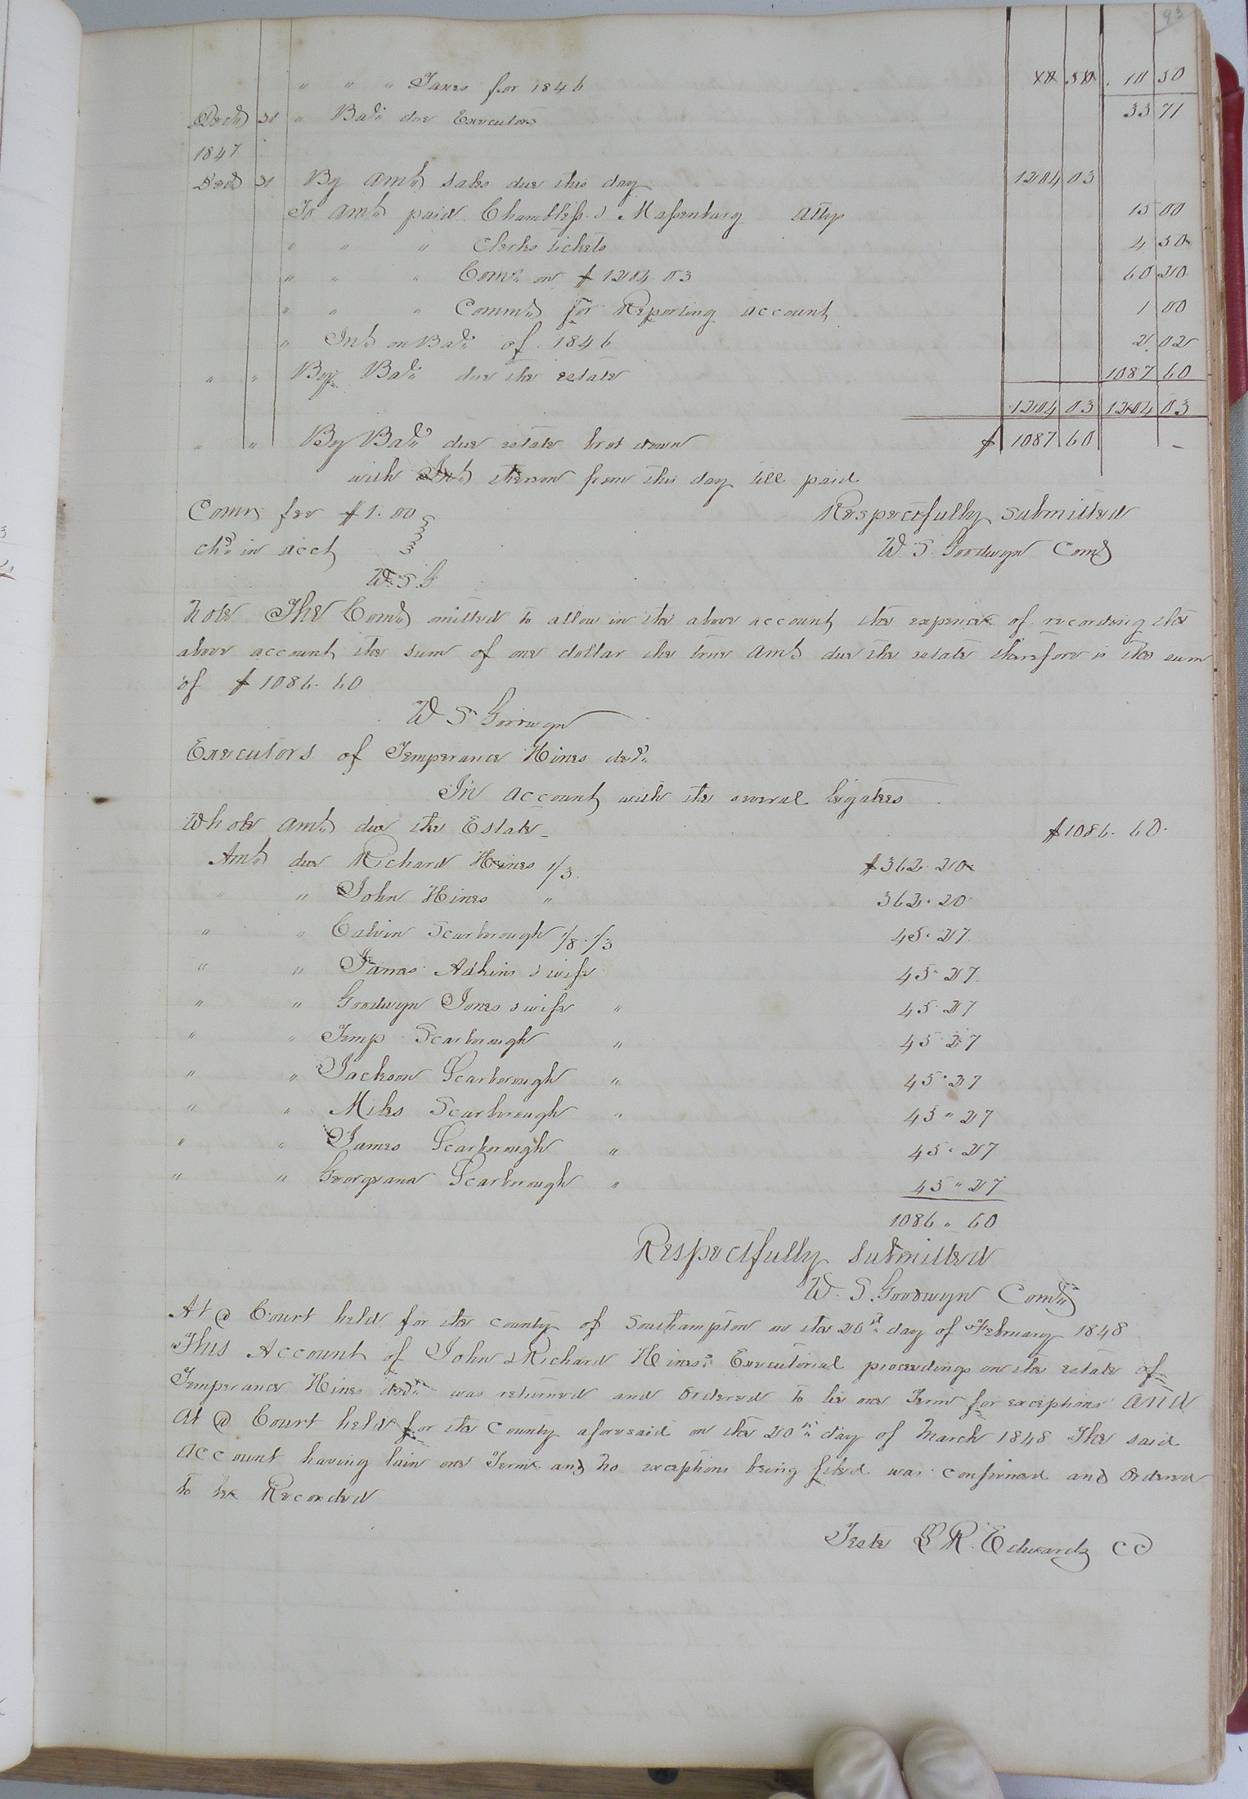 93
" " " Taxes for 1846 10 50
Decr 31 " Balc due Executors 33 71
1847
Decr 31 By Amt sales due this day 1204 03
To Amt paid Chambliss & Massenburg Atty 15 00
" " " Clerks tickets 4 50
" " " Coms on $1204 03 60 20
" " " Commr for Reporting account 1 00
" Int on Balc of 1846 2 02
" " By Balc due the estate 1087 60
1204 03 1204 03
" " By Balc due estate brot down $ 1087 60 -
with Int thereon from this day till paid
Comrs fee $1.00 Respectfully submitted
chd in acct W S Goodwyn Comr
W S G
Note The Comr omitted to allow in the above account the expence of recording the
above account the sum of one dollar the true amt due the estate therefore is the sum
of $1086.60
W S Goodwyn
Executors of Temperance Hines decd
In account with the several legatees
Whole amt due the Estate $1086.60.
Amt due Richard Hines 1/3 $362.20
" " John Hines " 362.20
" " Calvin Scarborough 1/8.1/3 45.27
" " James Adkins & wife 45.27
" " Goodwyn Jones & wife " 45.27
" " Temp Scarborough " 45.27
" " Jackson Scarborough " 45.27
" " Miles Scarborough " 45.27
" " James Scarborough " 45.27
" " Georgeana Scarborough " 45.27
1086.60
Respectfully submitted
W. S. Goodwyn Comr
At a Court held for the county of Southampton on the 20th day of February 1848
This Account of John & Richard Hines' Executorial proceedings on the estate of
Temperance Hines decd was returned and ordered to lie one Term for exceptions And
At a Court held for the County aforesaid on the 20th day of March 1848 The said
Account having lain one Term and no exceptions being filed was confirmed and Ordered
to be Recorded
Teste L R. Edwards CC